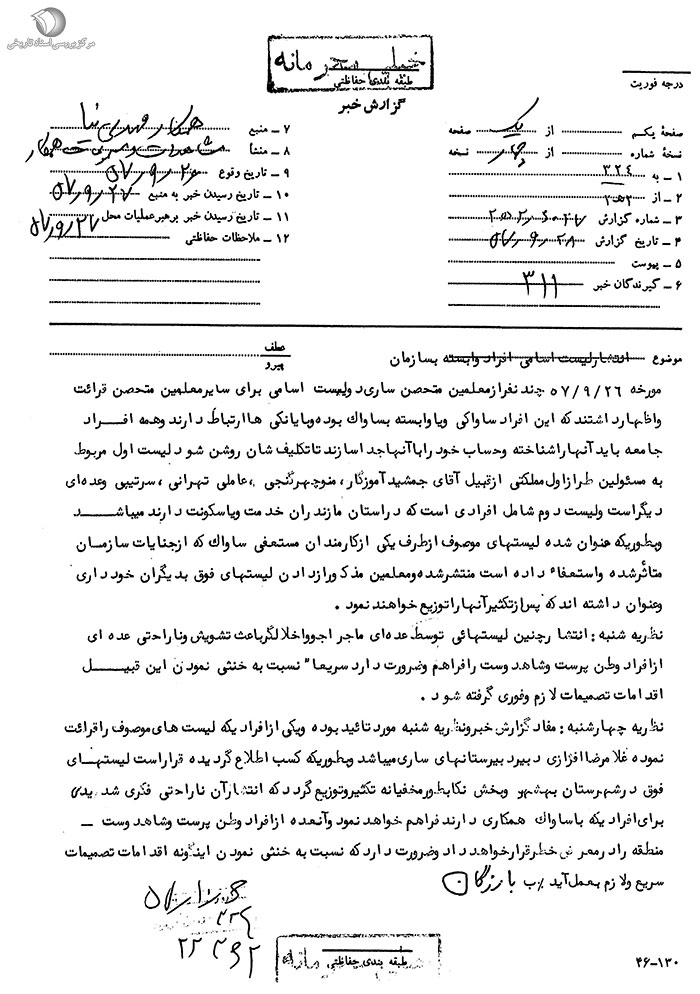 مرکز بررسی اسناد تاریخی
خیلی محرمانه
طبقه بندی حفاظتی
درجه فوریت
گزارش خبر
صفحهٔ یکم از یک صفحه
نسخهٔ شماره از چهار نسخه
۱ – به ۳۲۴
۲ – از
۳ – شماره گزارش
۴ – تاریخ گزارش ۵۷٫۹٫۲۸
۵ – پیوست
۶ – گیرندگان خبر ۳۱۱
۷ – منبع همکار مهدی نیا
۸ – منشأ مشاهدات و مسموعات همکار
۹ – تاریخ وقوع ۵۷٫۹٫۲۶
۱۰ – تاریخ رسیدن خبر به منبع ۵۷٫۹٫۲۷
۱۱ – تاریخ رسیدن خبر برهبر عملیات محل ۵۷٫۹٫۲۷
۱۲ – ملاحظات حفاظتی
موضوع – انتشار لیست اسامی افراد وابسته بسازمان
عطف
پیرو
مورخه ۵۷/۹/۲۶ چند نفر از معلمین متحصن ساری دو لیست اسامی برای سایر معلمین متحصن قرائت
و اظهار داشتند که این افراد ساواکی و یا وابسته بساواک بوده و یا بانکی ها ارتباط دارند و همه افراد
جامعه باید آنها را شناخته و حساب خود را با آنها جدا سازند تا تکلیف شان روشن شود لیست اول مربوط
به مسئولین طراز اول مملکتی از قبیل آقای جمشید آموزگار ، منوچهر گنجی ، عاملی تهرانی ، سرتیپی و عده ای
دیگر است و لیست دوم شامل افرادی است که در استان مازندران خدمت و یا سکونت دارند میباشد
و بطوریکه عنوان شده لیستهای موصوف از طرف یکی از کارمندان مستعفی ساواک که از جنایات سازمان
متأثر شده و استعفاء داده است منتشر شده و معلمین مذکور از دادن لیستهای فوق بدیگران خودداری
و عنوان داشته اند که پس از تکثیر آنها را توزیع خواهند نمود .
نظریه شنبه : انتشار چنین لیستهائی توسط عده ای ماجراجو و اخلالگر باعث تشویش و ناراحتی عده ای
از افراد وطن پرست و شاهدوست را فراهم و ضرورت دارد سریعا" نسبت به خنثی نمودن این قبیل
اقدامات تصمیمات لازم و فوری گرفته شود .
نظریه چهارشنبه : مفاد گزارش خبر و نظریه شنبه مورد تائید بوده و یکی از افرادیکه لیست های موصوف را قرائت
نموده غلامرضا افزازی دبیر دبیرستانهای ساری میباشد و بطوریکه کسب اطلاع گردیده قرار است لیستهای
فوق در شهرستان بهشهر و بخش نکا بطور مخفیانه تکثیر و توزیع گردد که انتشار آن ناراحتی فکری شدیدی
برای افرادیکه با ساواک همکاری دارند فراهم خواهد نمود و آنعده از افراد وطن پرست و شاهدوست –
منطقه را در معرض خطر قرار خواهد داد و ضرورت دارد که نسبت به خنثی نمودن اینگونه اقدامات تصمیمات
سریع و لازم بعمل آید ٪ب بازرگان
طبقه بندی حفاظتی
۴۶-۱۳۰